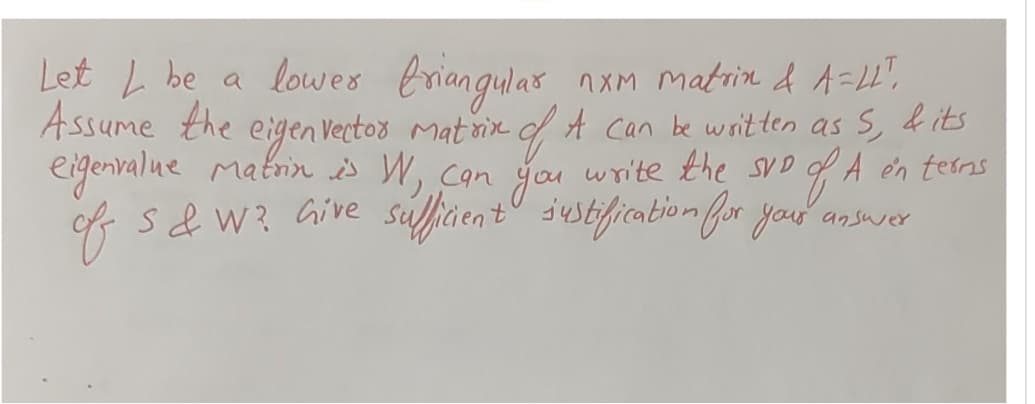 Let L be a lower triangular nxm matrix & A=LLᵀ.
Assume the eigenvector matrix of A can be written as S, & its
eigenvalue matrix is W, can you write the SVD of A in terms
of S & W? Give sufficient justification for your answer